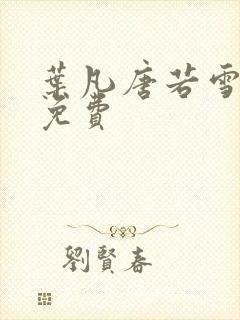 葉凡唐若雪
免費
劉賢春